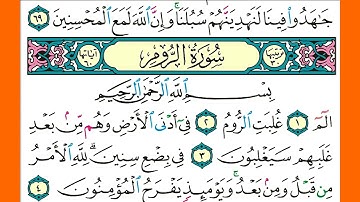 جَـٰهَدُوا۟ فِينَا لَنَهْدِيَنَّهُمْ سُبُلَنَا ۚ وَإِنَّ ٱللَّهَ لَمَعَ ٱلْمُحْسِنِينَ ٦٩
سُورَةُ الرُّومِ
بِسْمِ ٱللَّهِ ٱلرَّحْمَـٰنِ ٱلرَّحِيمِ
الٓمٓ ١ غُلِبَتِ ٱلرُّومُ ٢ فِىٓ أَدْنَى ٱلْأَرْضِ وَهُم مِّنۢ بَعْدِ
غَلَبِهِمْ سَيَغْلِبُونَ ٣ فِى بِضْعِ سِنِينَ ۗ لِلَّهِ ٱلْأَمْرُ
مِن قَبْلُ وَمِنۢ بَعْدُ ۚ وَيَوْمَئِذٍ يَفْرَحُ ٱلْمُؤْمِنُونَ ٤